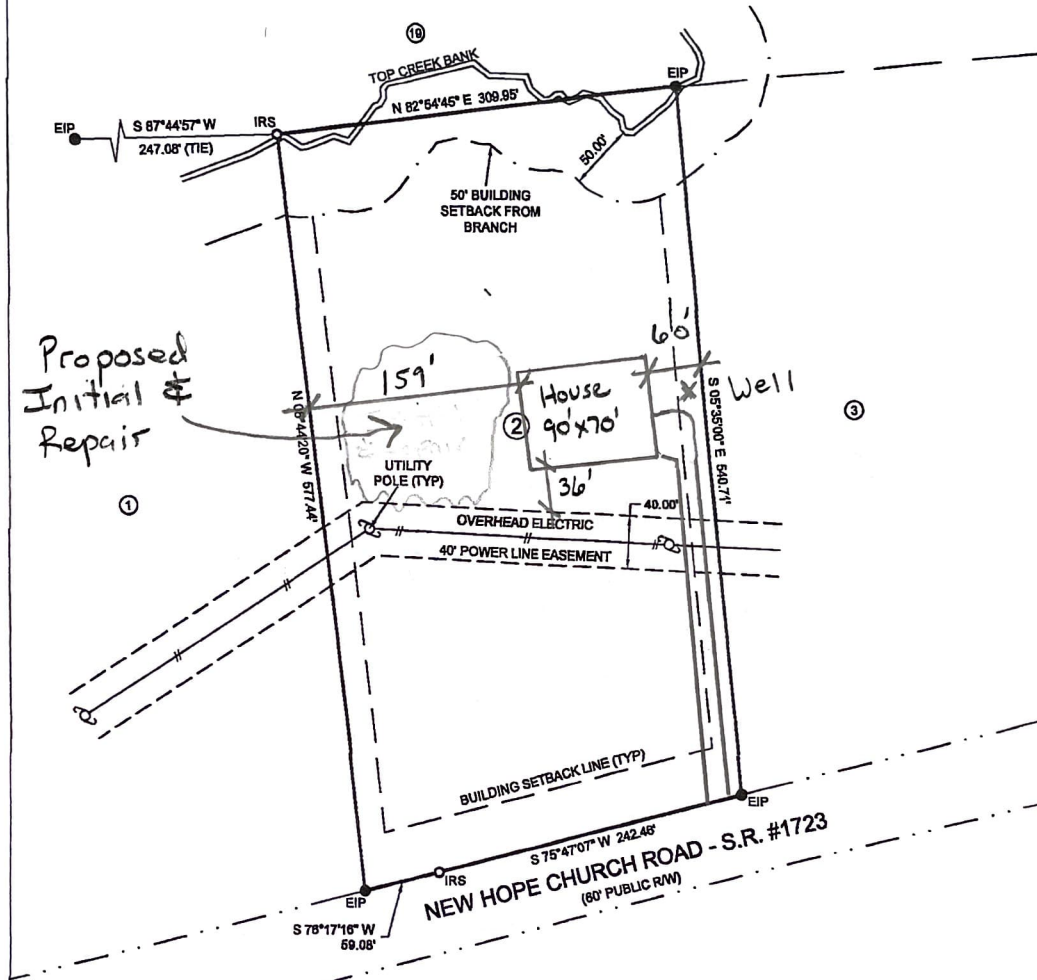 19
TOP CREEK BANK
EIP
N 82°54'45" E 309.95'
IRS
S 87°44'57" W
247.08' (TIE)
EIP
50.00'
50' BUILDING
SETBACK FROM
BRANCH
60'
Proposed
Initial &
Repair
159'
House
90'x70'
Well
2
3
N 06°44'20" W 577.44'
S 05°35'00" E 540.71'
36'
1
UTILITY
POLE (TYP)
40.00'
OVERHEAD ELECTRIC
40' POWER LINE EASEMENT
BUILDING SETBACK LINE (TYP)
EIP
S 75°47'07" W 242.46'
IRS
NEW HOPE CHURCH ROAD - S.R. #1723
(60' PUBLIC R/W)
EIP
S 76°17'16" W
59.08'